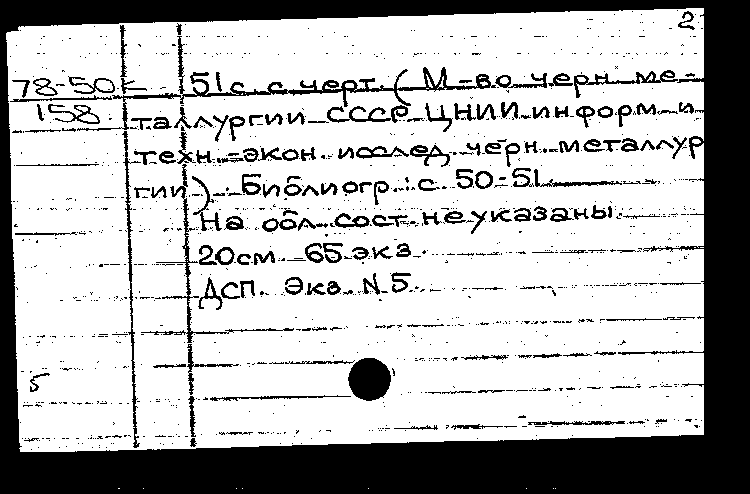 2
78-50к 51с. с черт. (М-во черн. ме-
158 таллургии СССР. ЦНИИ информ. и
техн.-экон. исслед. черн. металлур
гии). Библиогр.: с. 50-51.
На обл. сост. не указаны.
20см. 65 экз.
ДСП. Экз. N 5.
5